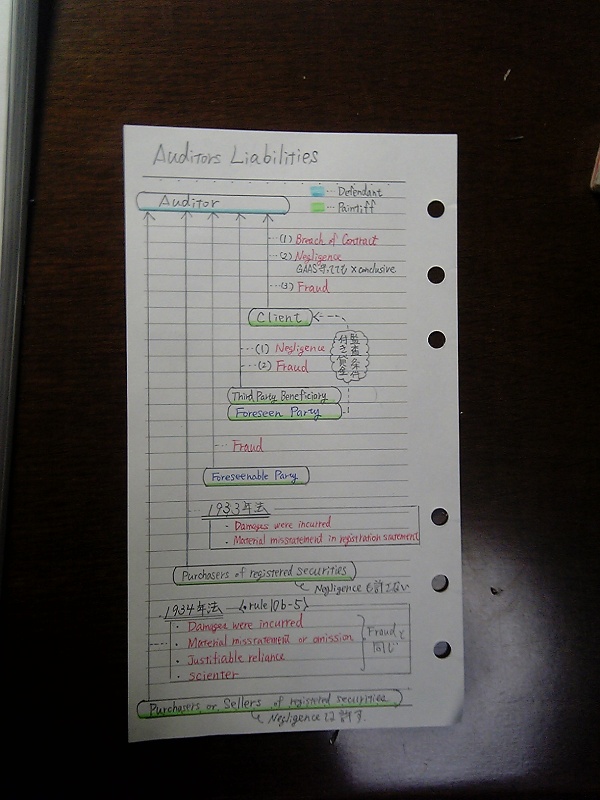 Auditors Liabilities
Auditor
... Defendant
... Paintiff
(1) Breach of Contract
(2) Negligence
GAAS守ってても × conclusive
(3) Fraud
Client
監査条件付き貸金
(1) Negligence
(2) Fraud
Third Party Beneficiary
Foreseen Party
Fraud
Foreseenable Party
1933年法
・Damages were incurred
・Material misstatement in registration statement
Purchasers of registered securities
Negligenceも許さない
1934年法 {rule 10b-5}
・Damages were incurred
・Material misstatement or omission
・Justifiable reliance
・scienter
Fraudと同じ
Purchasers or Sellers of registered securities
Negligenceは許す.